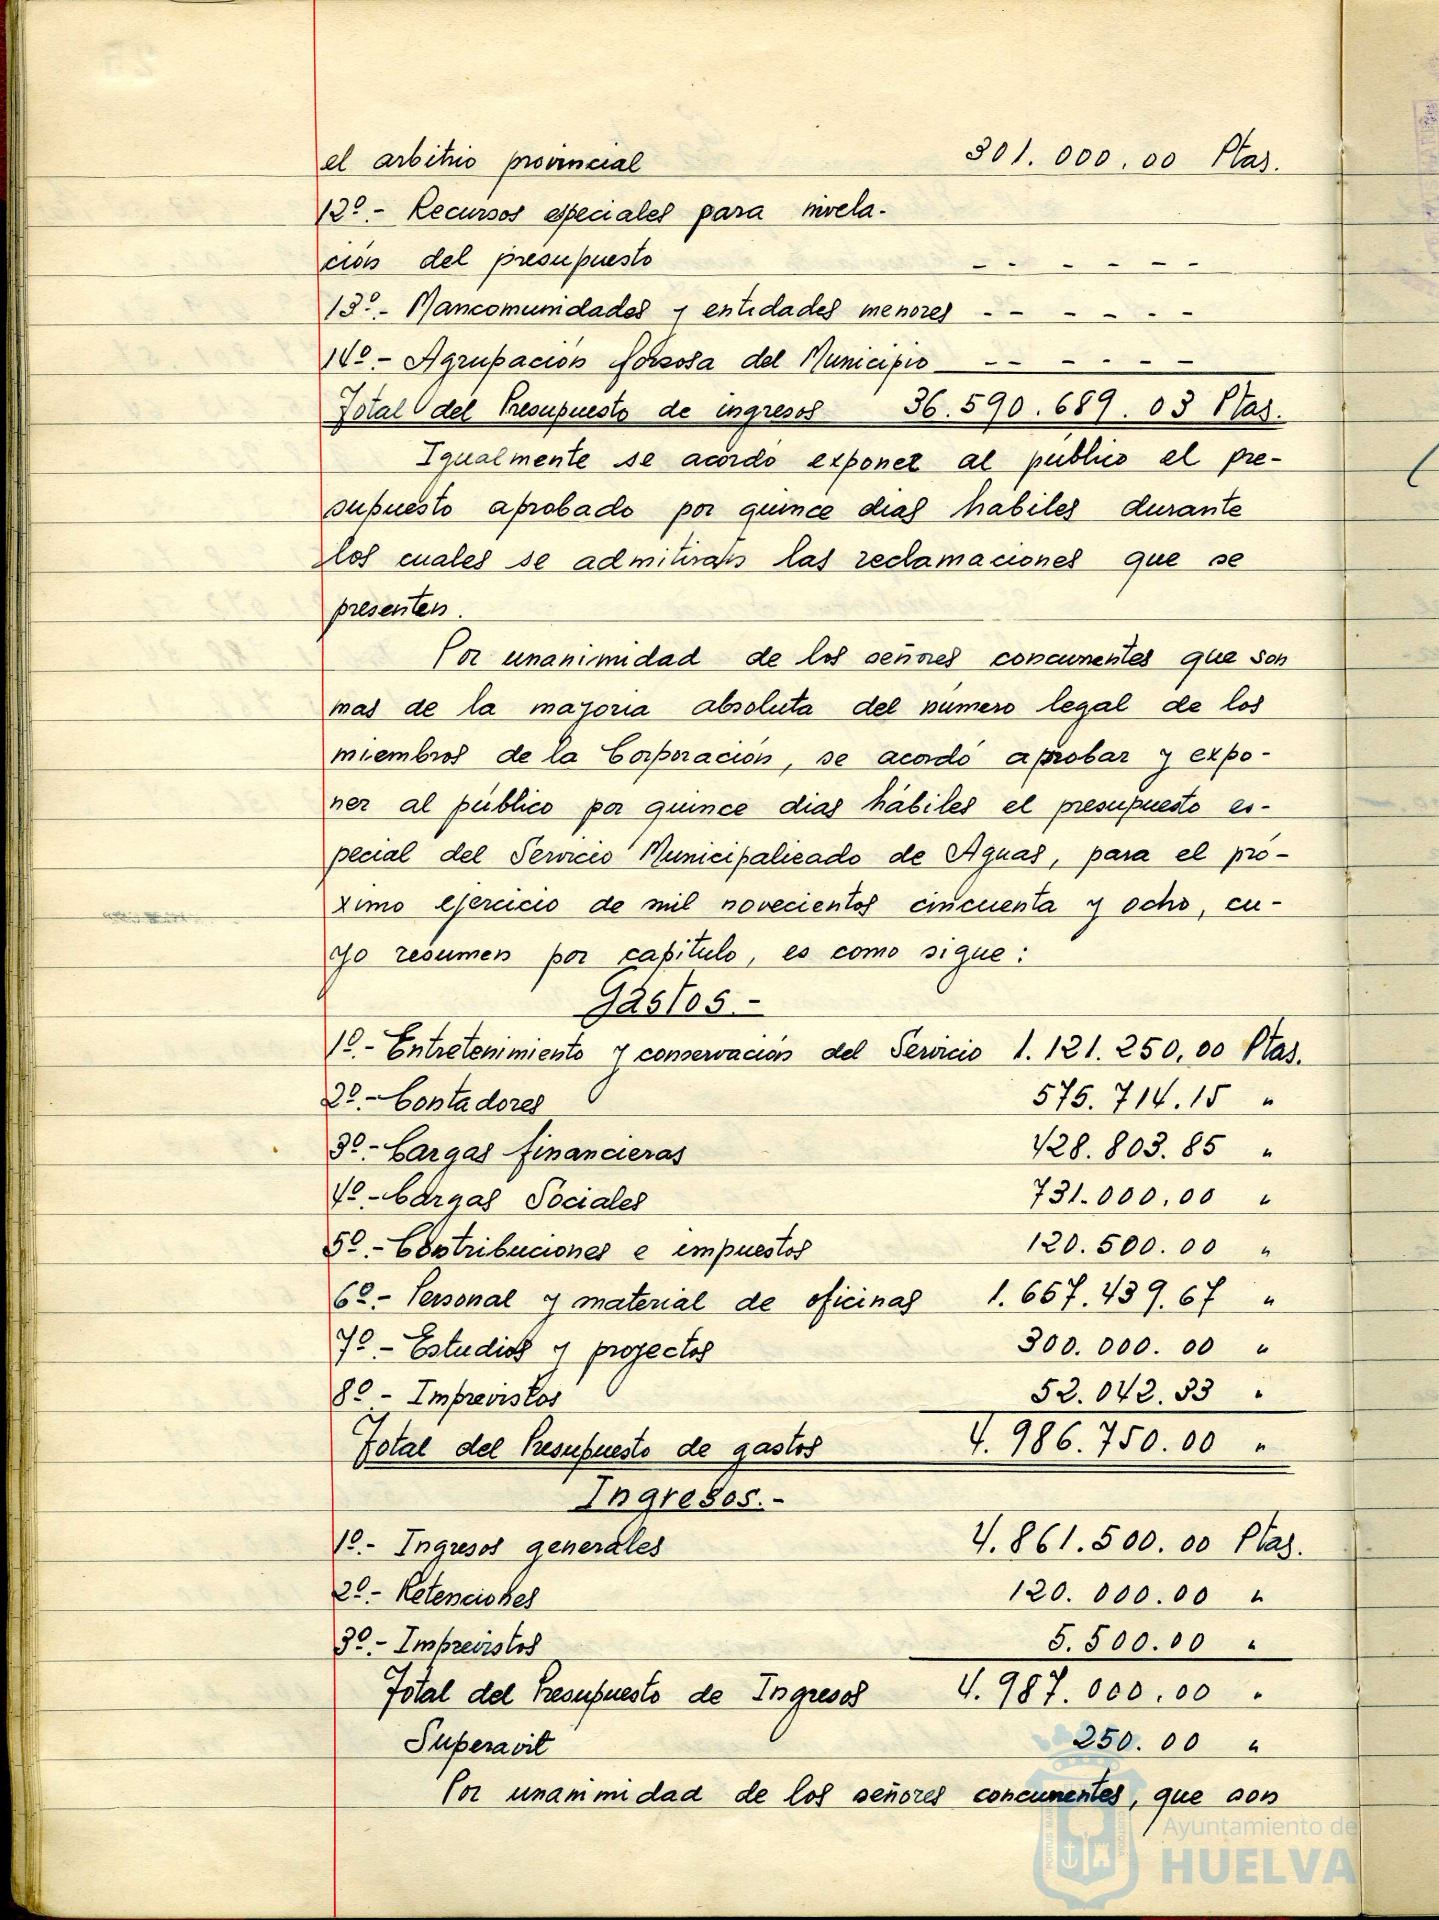 el arbitrio provincial 301.000,00 Ptas.
12º.- Recursos especiales para nivela-
ción del presupuesto - - - - - -
13º.- Mancomunidades y entidades menores - - - - - -
14º.- Agrupación forsosa del Municipio - - - - - -
Total del Presupuesto de ingresos 36.590.689.03 Ptas.
Igualmente se acordó exponer al público el pre-
supuesto aprobado por quince dias habiles durante
los cuales se admitirán las reclamaciones que se
presenten.
Por unanimidad de los señores concurrentes que son
mas de la mayoria absoluta del número legal de los
miembros de la Corporación, se acordó aprobar y expo-
ner al público por quince dias hábiles el presupuesto es-
pecial del Servicio Municipalizado de Aguas, para el pró-
ximo ejercicio de mil novecientos cincuenta y ocho, cu-
yo resumen por capítulo, es como sigue:
Gastos.-
1º.- Entretenimiento y conservación del Servicio 1.121.250,00 Ptas.
2º.- Contadores 575.714.15 "
3º.- Cargas financieras 428.803.85 "
4º.- Cargas Sociales 731.000,00 "
5º.- Contribuciones e impuestos 120.500.00 "
6º.- Personal y material de oficinas 1.657.439.67 "
7º.- Estudios y proyectos 300.000.00 "
8º.- Imprevistos 52.042.33 "
Total del Presupuesto de gastos 4.986.750.00 "
Ingresos.-
1º.- Ingresos generales 4.861.500.00 Ptas.
2º.- Retenciones 120.000.00 "
3º.- Imprevistos 5.500.00 "
Total del Presupuesto de Ingresos 4.987.000,00 "
Superavit 250.00 "
Por unanimidad de los señores concurrentes, que son
Ayuntamiento de
HUELVA